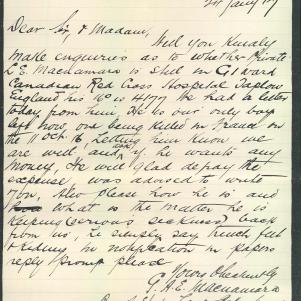 24 Jany 17
Dear Sir, & Madam,
Will you Kindly
make enquiries as to whether Private
L. E. Macnamara is still in G1 Ward
Canadian Red Cross Hospital Taplow
England his No is 4177 We had a letter
today from him. He is our only boy
left now, one being killed in France on
the 11 Oct. 16, Letting him know we
are well and ask if he wants any
money, He will glad deposit the
expense, I was advised to write
you, Also please how he is and
what is the matter he is
keeping (serious sickness) back
from us, he simply say trench feet
& kidney. No notification in papers
reply prompt please
Yours Obediently
G. A. E. Macnamara